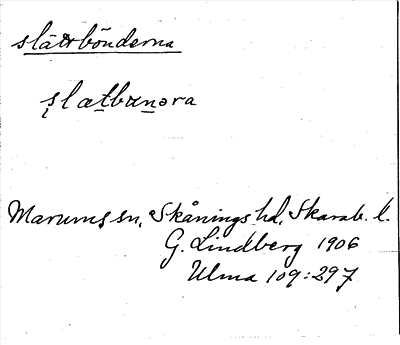 slättbönderna
s̨læt̲bɯn̲əra
Marums sn, Skånings hd, Skarab. l.
G. Lindberg 1906
Ulma 109:297